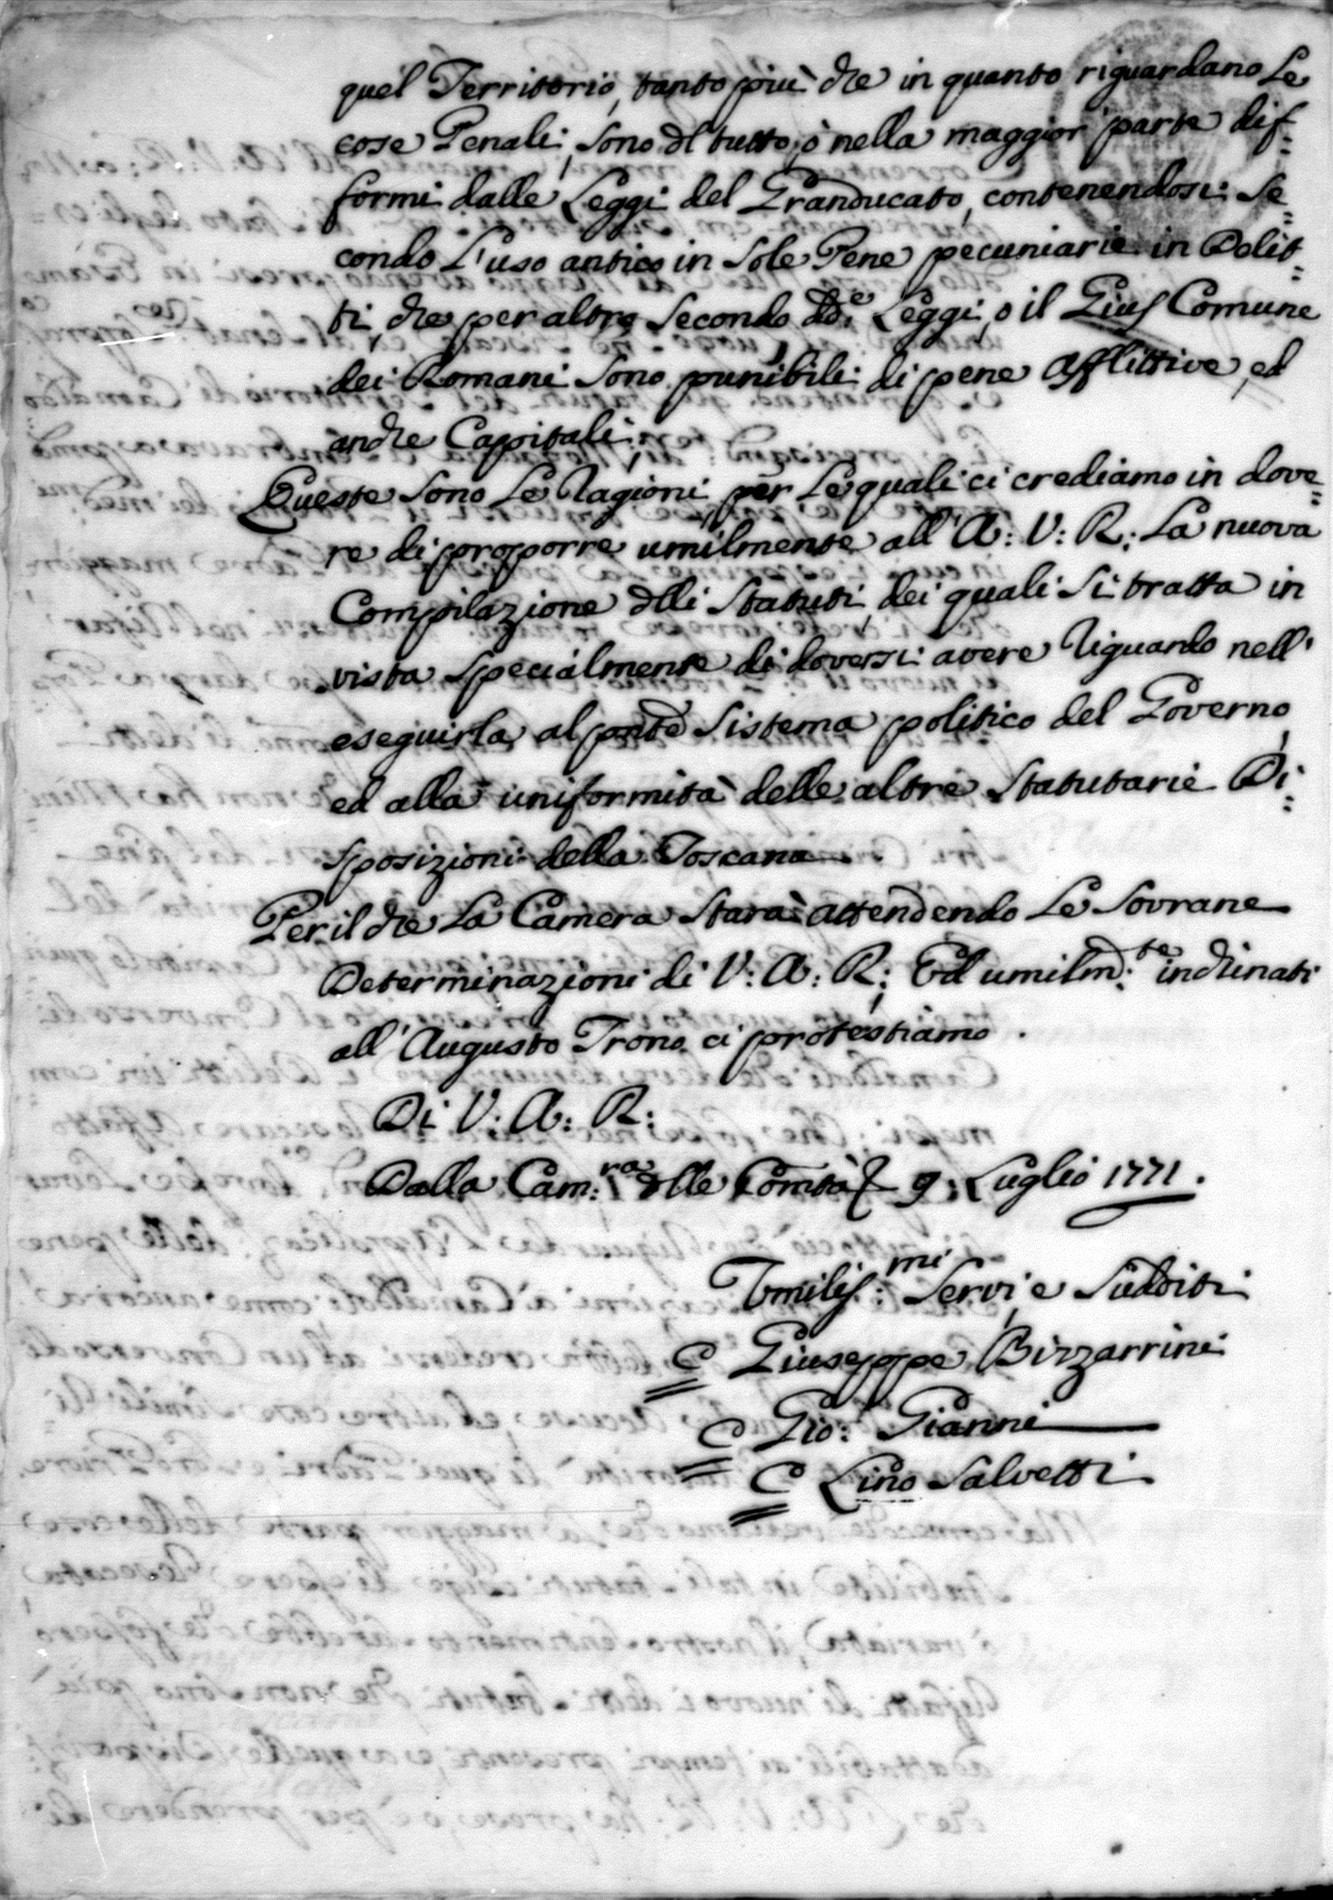 quel Territorio, tanto più che in quanto riguardano Le
cose Penali, sono dl tutto, ò nella maggior parte dif=
formi dalle Leggi del Granducato, contenendosi Se=
condo L'uso antico in Sole Pene pecuniarie in Delit=
ti, che per altro Secondo dd.e Leggi, o il Gius Comune
dei Romani Sono punibili di pene afflittive, ed
anche Capitali;
Queste Sono Le Ragioni, per Le quali ci crediamo in dove=
re di proporre umilmente all' A: V: R: La nuova
Compilazione dlli Statuti, dei quali Si tratta in
vista specialmente di doversi avere Riguardo nell'
eseguirla al pnte Sistema politico del Governo,
ed alla uniformità delle altre Statutarie Di=
sposizioni della Toscana.
Per il che La Camera Starà attendendo Le Sovrane
Determinazioni di V: A: R: Ed umilm:te inchinati
all' Augusto Trono ci protestiamo.
Di V: A: R:
Dalla Cam:ra dlle Comità 9. Luglio 1771.
Umiliss:mi Servi, e Sudditi
C Giuseppe Bizzarrini
C Gio: Gianni
C Lino Salvetti